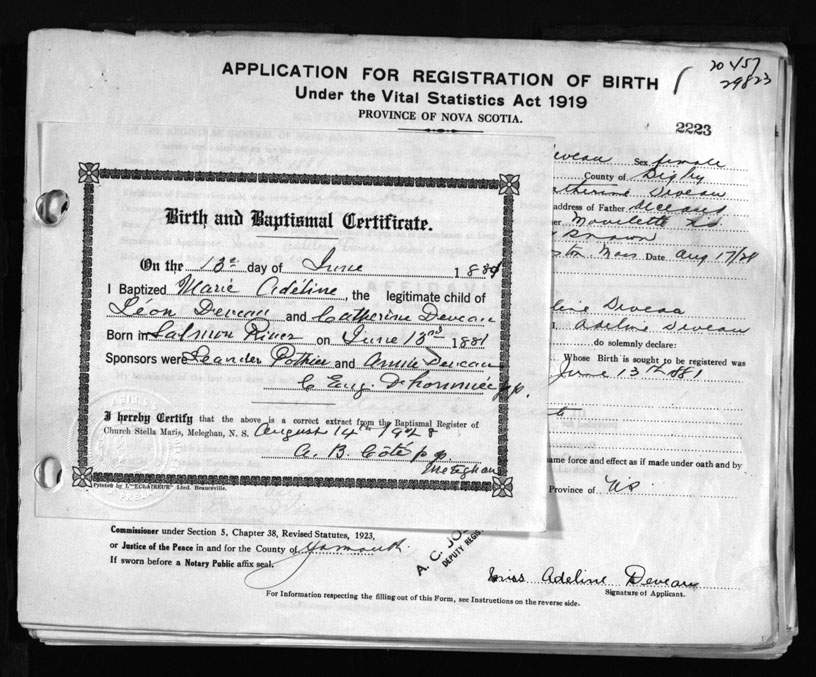 20457
29823
APPLICATION FOR REGISTRATION OF BIRTH
Under the Vital Statistics Act 1919
PROVINCE OF NOVA SCOTIA.
2223
Deveau Sex female
County of Digby
Catherine Deveau
address of Father deceased
Mass. Date Aug 17/28
Birth and Baptismal Certificate.
On the 13th day of June 1881
I Baptized Marie Adéline, the legitimate child of
Léon Deveau and Catherine Deveau
Born in Salmon River on June 13 1881
Sponsors were Leander Pothier and Annie Deveau
I hereby Certify that the above is a correct extract from the Baptismal Register of
Church Stella Maris, Meteghan, N. S. August 14th 1928
A. B. Côté p.p.
Meteghan
Printed by L'"ECLAIREUR" Ltd. Beauceville.
Adeline Deveau
do solemnly declare:
Whose Birth is sought to be registered was
June 13th 1881
same force and effect as if made under oath and by
Province of NS
Commissioner under Section 5, Chapter 38, Revised Statutes, 1923,
or Justice of the Peace in and for the County of Yarmouth
If sworn before a Notary Public affix seal.
A. C. JO
DEPUTY REGIS
Miss Adeline Deveau
Signature of Applicant.
For Information respecting the filling out of this Form, see Instructions on the reverse side.